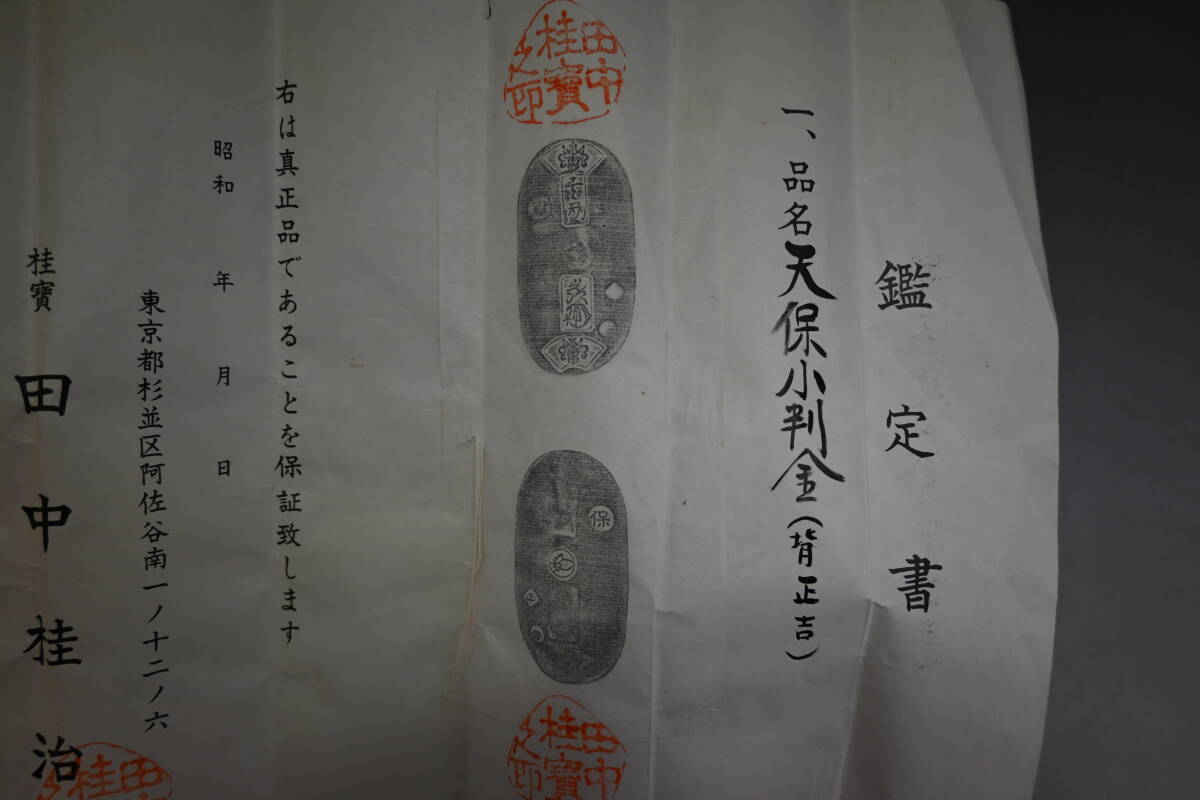 鑑定書
一、品名天保小判金(背正吉)
田中
桂寶
之印
保
田中
桂寶
之印
右は真正品であることを保証致します
昭和　年　月　日
東京都杉並区阿佐谷南一ノ十二ノ六
桂寶 田中桂治
田
桂